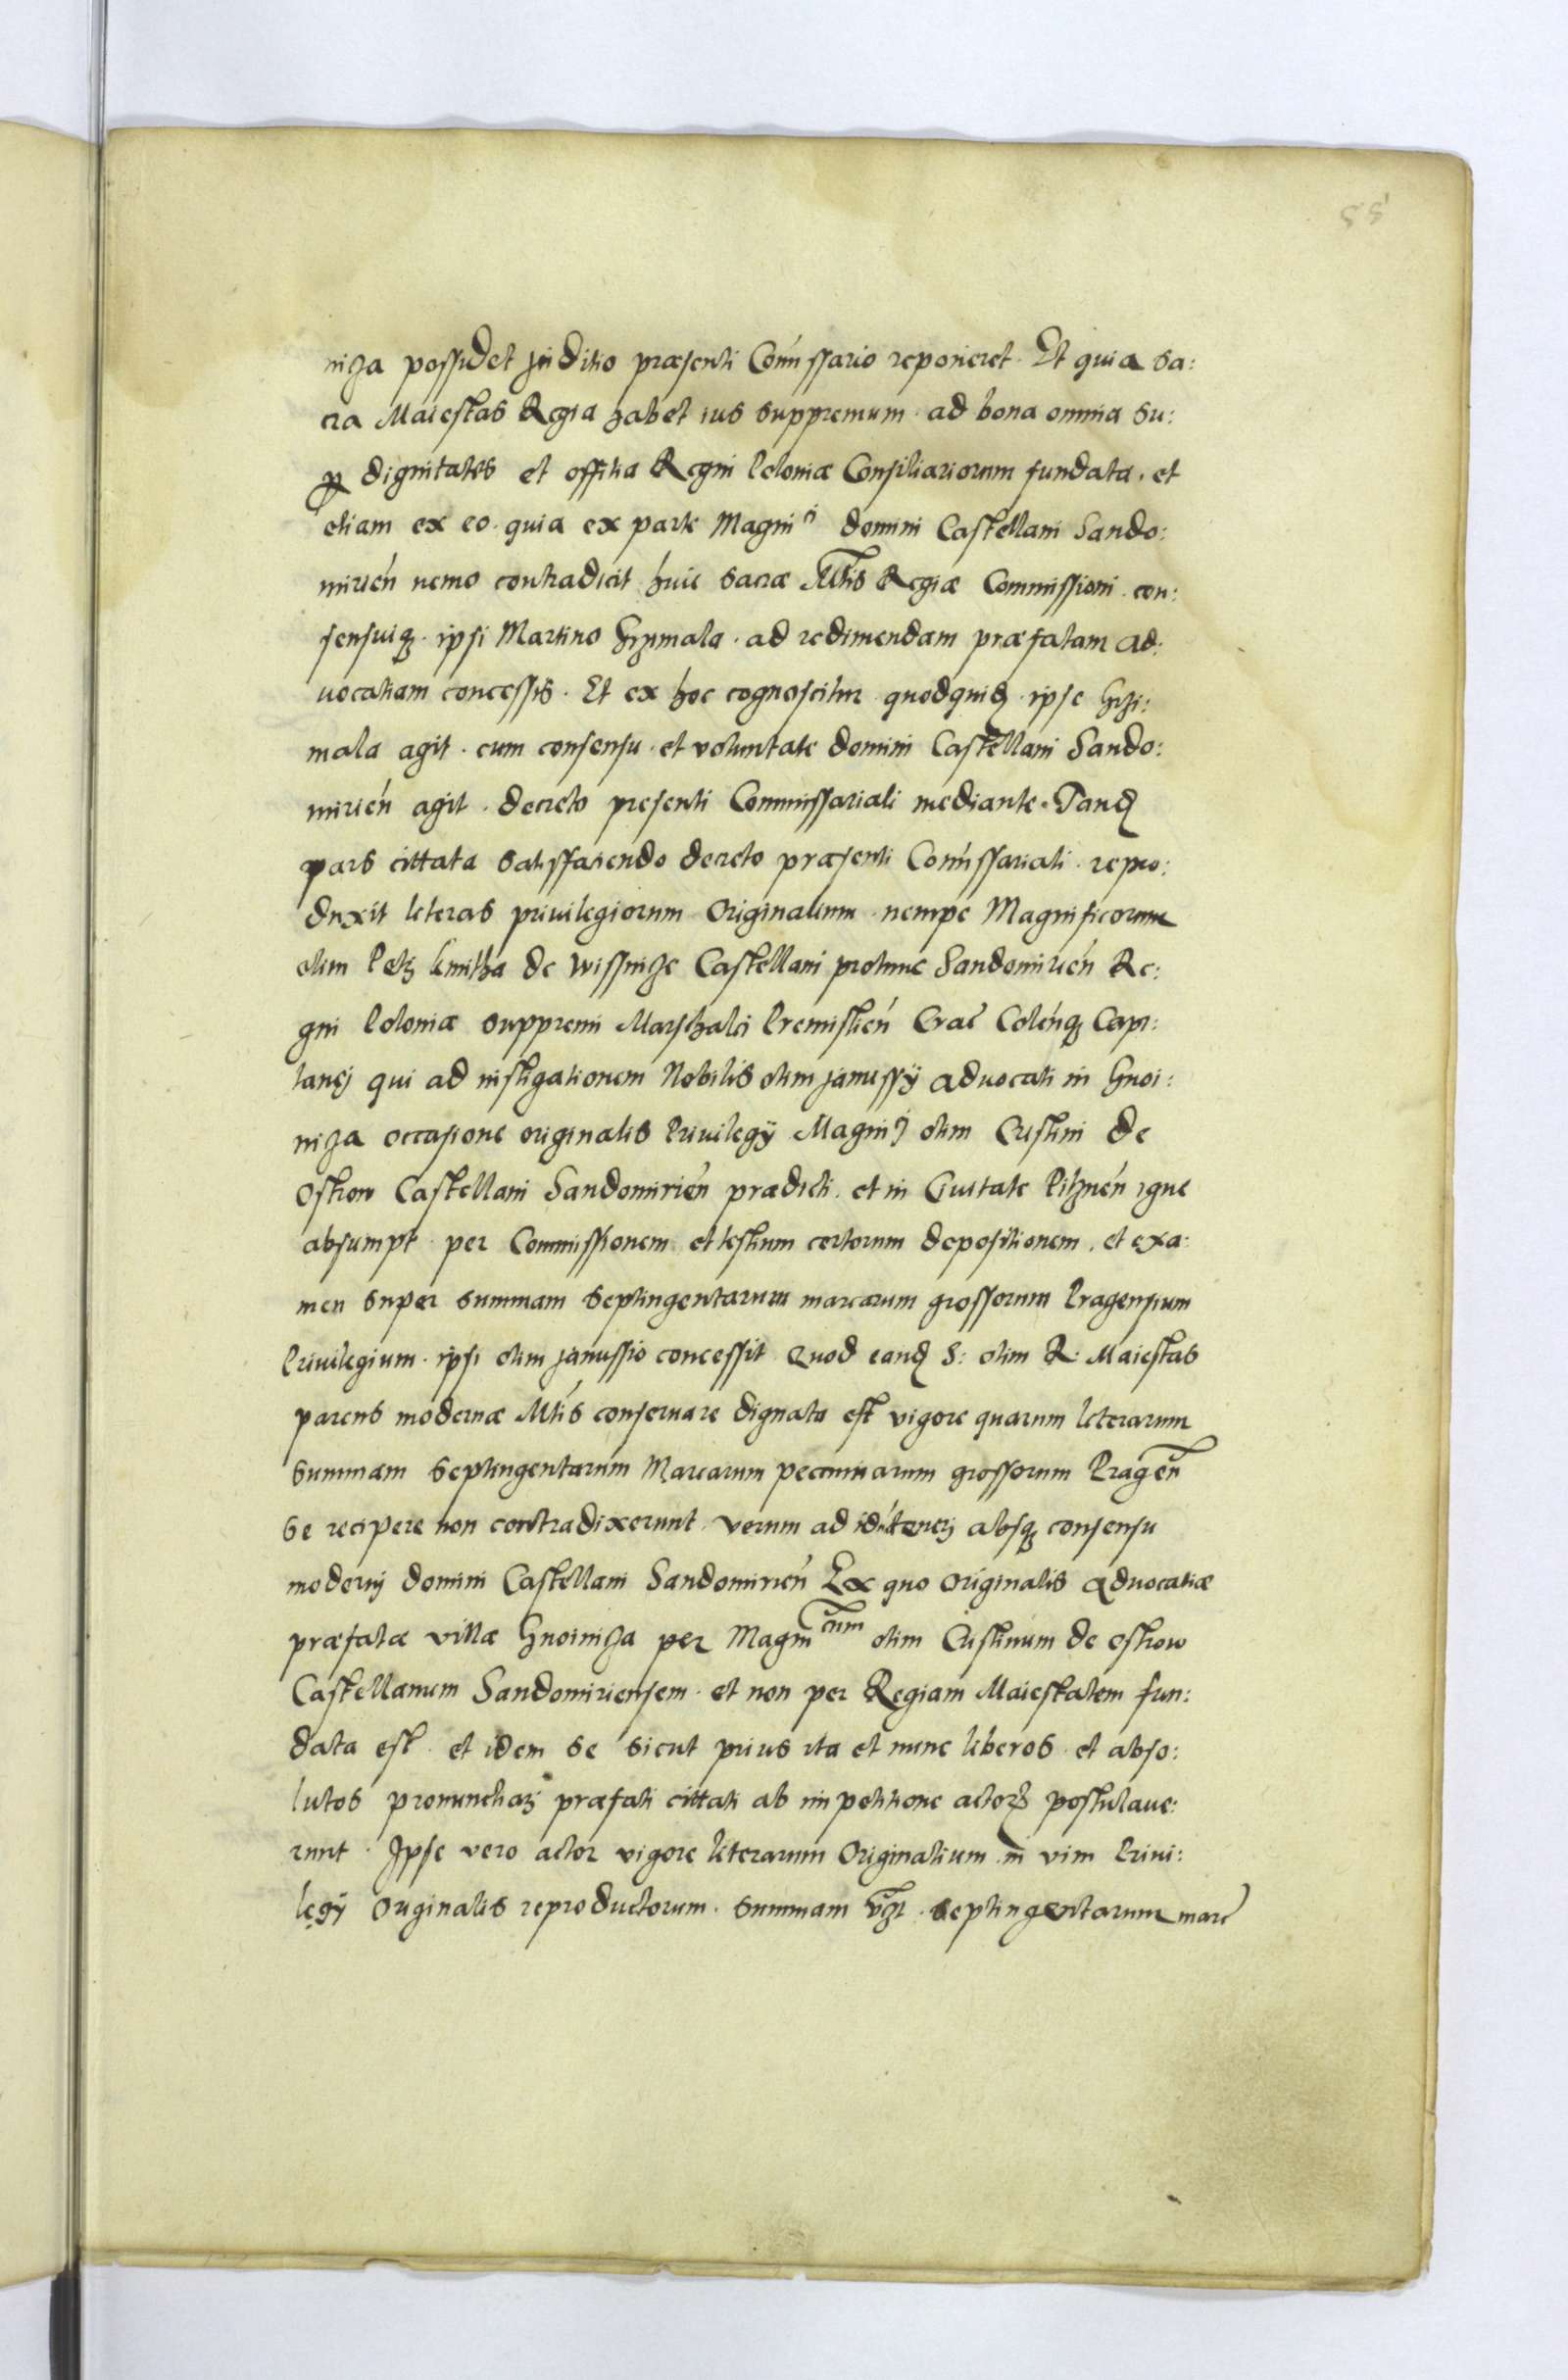 55
nicza possidet Juditio præsenti Comissario reponeret. Et quia sa:
cra Maiestas Regia habet ius suppremum ad bona omnia su:
per dignitates et offitia Regni Poloniæ Consiliariorum fundata. et
etiam ex eo. quia ex parte Magnici domini Castellani Sando:
mirien nemo contradicit huic sacræ Mtis Regiæ Commissioni. con:
sensuiq. ipsi Martino Grzimala. ad redimendam præfatam ad:
uocatiam concessis. Et ex hoc cognoscitur quodquid ipse Grzi:
mala agit. cum consensu. et voluntate domini Castellani Sando:
mirien agit. decreto presenti Commissariali mediante. Tand
pars cittata satisfaciendo decreto præsenti Comissariali. repro:
duxit leteras privilegiorum Originalium nempe Magnificorum
olim Petri kmitha de Wissnicze Castellani protunc Sandomirien Re:
gni Poloniæ suppremi Marschalci Premislien Crac Colenq Capi:
tanej qui ad instigationem Nobilis olim Janussÿ aduocati in Gnoi:
nicza occasione originalis Priuilegÿ Magnici olim Cristini de
Ostrow Castellani Sandomirien prædicti. et in Ciuitate Pilznen igne
absumpt per Commissionem et testium certorum depositionem. et exa:
men super summam septingentarum marcarum grossorum Pragensium
Priuilegium. ipsi olim Janussio concessit Quod eand S: olim R: Maiestas
parens modernæ Mtis conseruare dignata est vigore quarum leterarum
summam septingentarum Marcarum pecuniarum grossorum Pragen
se recipere non contradixerunt. verum ad absq consensu
modernj domini Castellani Sandomirien Ex quo Originalis aduocatiæ
præfatæ villæ Gnoinicza per Magnicum olim Cristinum de ostrow
Castellanum Sandomiriensem. et non per Regiam Maiestatem fun:
data est. et idem se sicut prius ita et nunc liberos. et abso:
lutos pronunctiari præfati cittati ab impetitione actoris postulaue:
runt. Ipse vero actor vigore literarum Originalium in vim Priui:
legÿ Originalis reproductorum. summam septingentarum marc